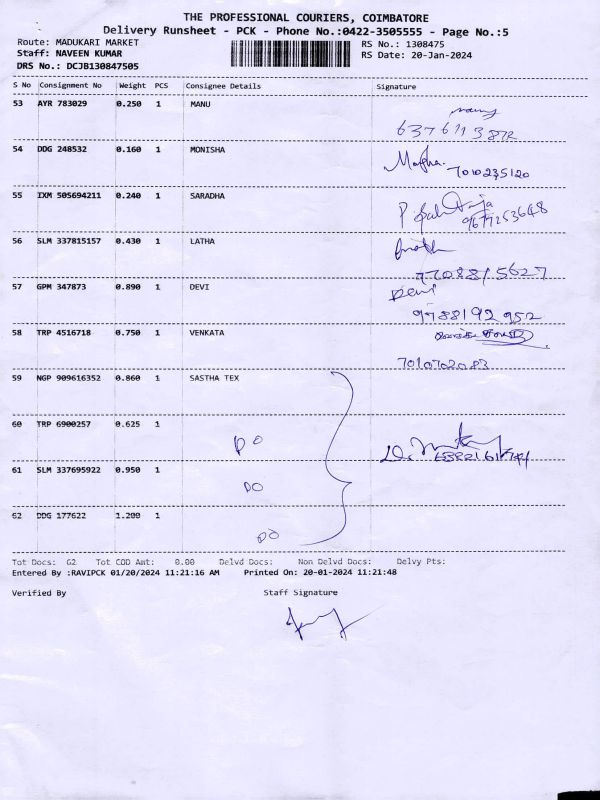 THE PROFESSIONAL COURIERS, COIMBATORE
Delivery Runsheet - PCK - Phone No.:0422-3505555 - Page No.:5
Route: MADUKARI MARKET RS No.: 1308475
Staff: NAVEEN KUMAR RS Date: 20-Jan-2024
DRS No.: DCJB130847505
S No Consignment No Weight PCS Consignee Details Signature
53 AYR 783029 0.250 1 MANU
54 DDG 248532 0.160 1 MONISHA
7010235120
55 IXM 505694211 0.240 1 SARADHA
9677253648
56 SLM 337815157 0.430 1 LATHA
9770881 5627
57 GPM 347873 0.890 1 DEVI Devi
9788192 952
58 TRP 4516718 0.750 1 VENKATA
7010702083
59 NGP 909616352 0.860 1 SASTHA TEX
60 TRP 6900257 0.625 1
DO
61 SLM 337695922 0.950 1
DO
62 DDG 177622 1.200 1
DO
Tot Docs: 62 Tot COD Amt: 0.00 Delvd Docs: Non Delvd Docs: Delvy Pts:
Entered By :RAVIPCK 01/20/2024 11:21:16 AM Printed On: 20-01-2024 11:21:48
Verified By Staff Signature